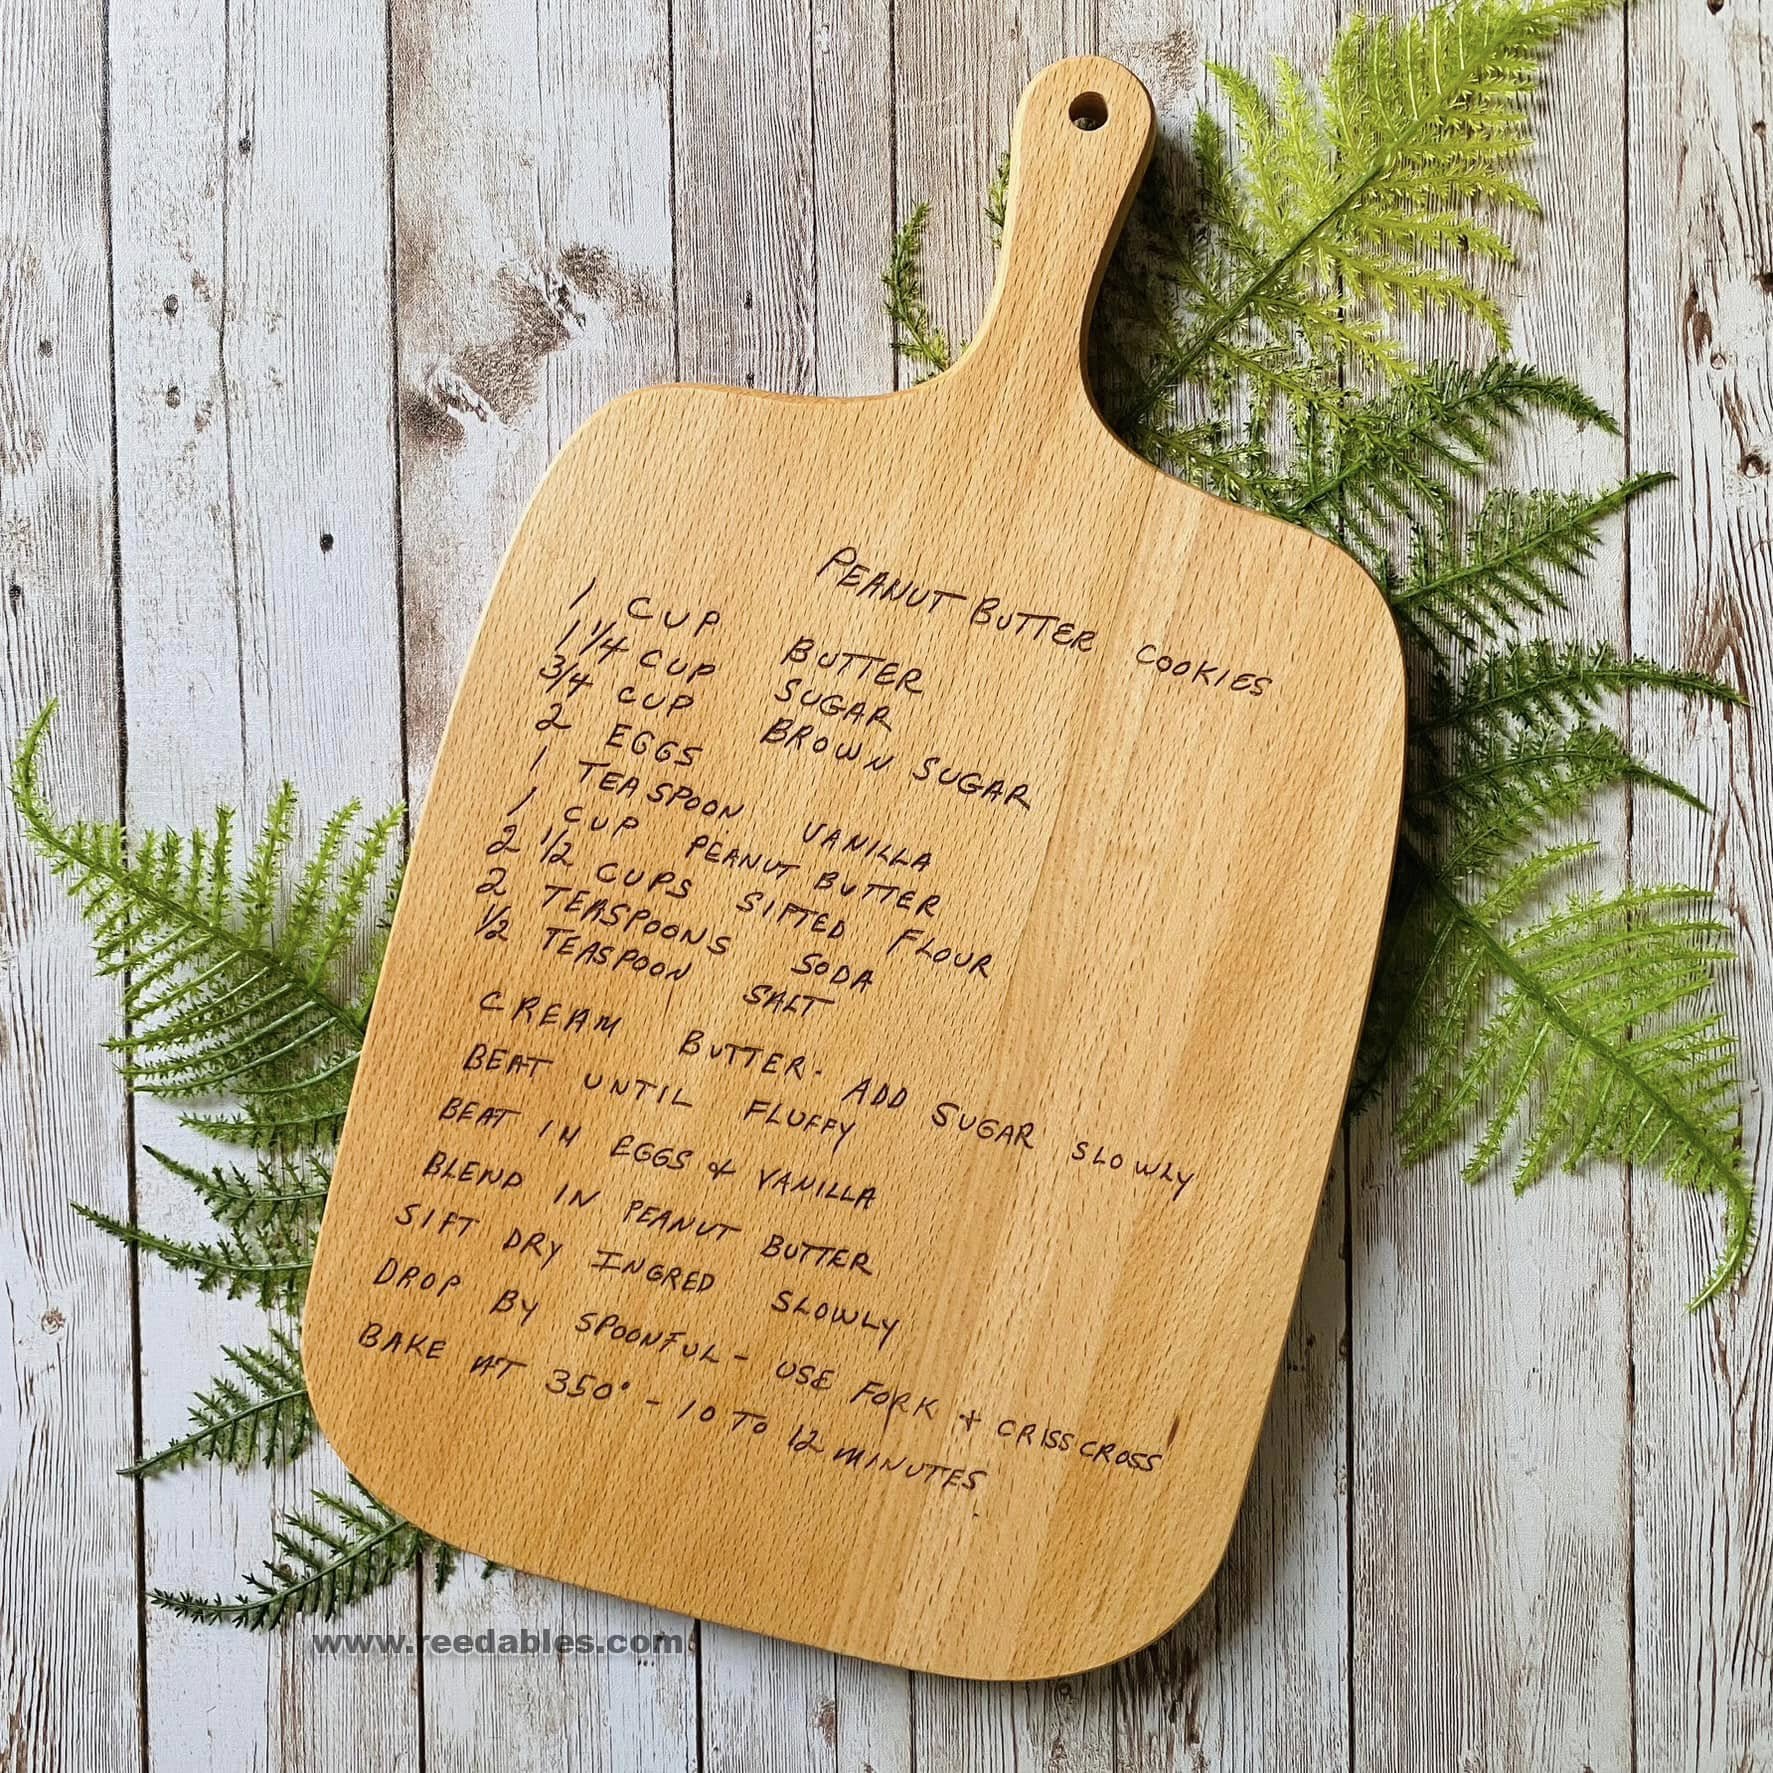 PEANUT BUTTER COOKIES
1 CUP BUTTER
1 1/4 CUP SUGAR
3/4 CUP BROWN SUGAR
2 EGGS
1 TEASPOON VANILLA
1 CUP PEANUT BUTTER
2 1/2 CUPS SIFTED FLOUR
2 TEASPOONS SODA
1/2 TEASPOON SALT
CREAM BUTTER. ADD SUGAR SLOWLY
BEAT UNTIL FLUFFY
BEAT IN EGGS & VANILLA
BLEND IN PEANUT BUTTER
SIFT DRY INGRED SLOWLY
DROP BY SPOONFUL - USE FORK + CRISSCROSS
BAKE AT 350° - 10 TO 12 MINUTES
www.reedables.com